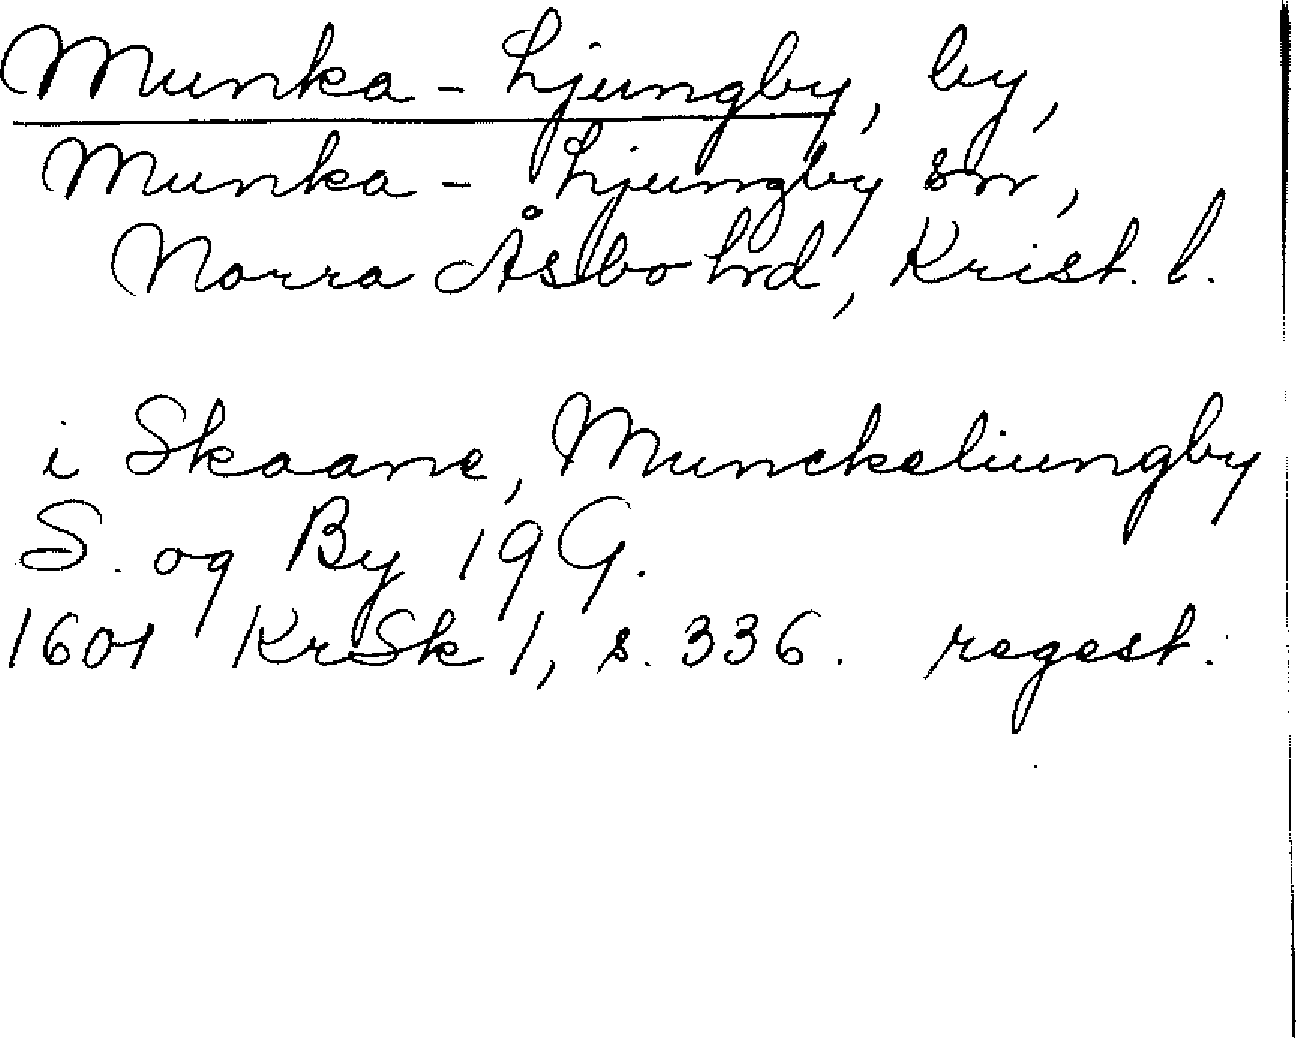 Munka-Ljungby, by,
Munka-Ljungby sn,
Norra Åsbo hrd, Krist. l.
i Skaane, Munckeliungby
S. og By 19 G.
1601 KrSk 1, s. 336. regest.